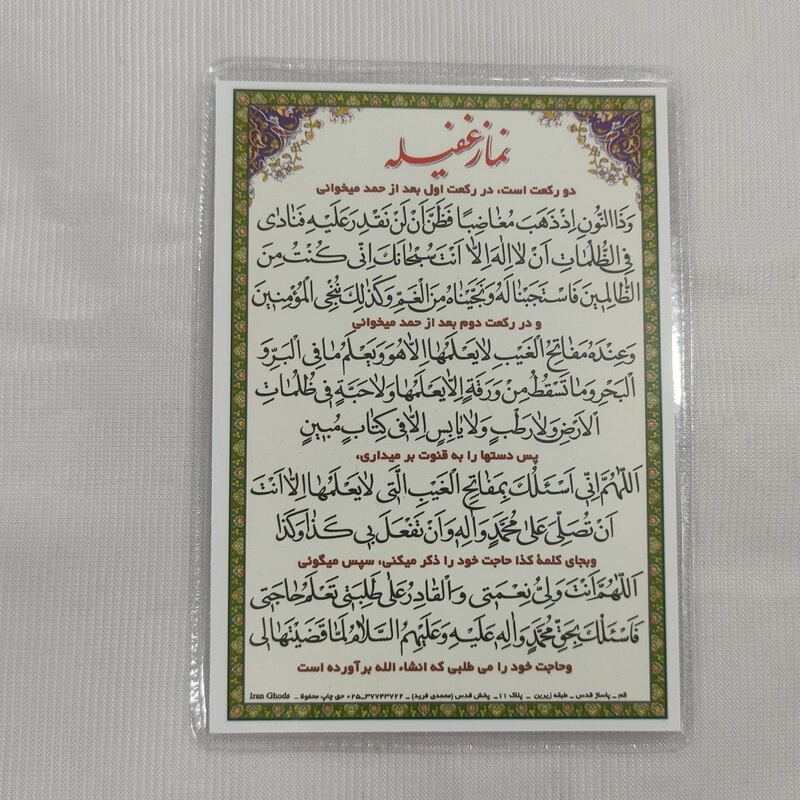 نماز غفیله
دو رکعت است، در رکعت اول بعد از حمد میخوانی
وَذَا النُّونِ اِذْ ذَهَبَ مُغَاضِبًا فَظَنَّ اَنْ لَنْ نَقْدِرَ عَلَیْهِ فَنَادٰی
فِی الظُّلُمَاتِ اَنْ لَا اِلٰهَ اِلَّا اَنْتَ سُبْحَانَكَ اِنّٖی كُنْتُ مِنَ
الظَّالِمٖینَ فَاسْتَجَبْنَا لَهُ وَنَجَّیْنَاهُ مِنَ الْغَمِّ وَكَذٰلِكَ نُنْجِی الْمُؤْمِنٖینَ
و در رکعت دوم بعد از حمد میخوانی
وَعِنْدَهُ مَفَاتِحُ الْغَیْبِ لَا یَعْلَمُهَا اِلَّا هُوَ وَیَعْلَمُ مَا فِی الْبَرِّ وَ
الْبَحْرِ وَمَا تَسْقُطُ مِنْ وَرَقَةٍ اِلَّا یَعْلَمُهَا وَلَا حَبَّةٍ فٖی ظُلُمَاتِ
الْاَرْضِ وَلَا رَطْبٍ وَلَا یَابِسٍ اِلَّا فٖی كِتَابٍ مُبٖینٍ
پس دستها را به قنوت بر میداری،
اَللّٰهُمَّ اِنّٖی اَسْئَلُكَ بِمَفَاتِحِ الْغَیْبِ الَّتٖی لَا یَعْلَمُهَا اِلَّا اَنْتَ
اَنْ تُصَلِّیَ عَلٰی مُحَمَّدٍ وَاٰلِهِ وَاَنْ تَفْعَلَ بٖی كَذَا وَكَذَا
وبجای کلمهٔ کذا حاجت خود را ذکر میکنی، سپس میگوئی
اَللّٰهُمَّ اَنْتَ وَلِیُّ نِعْمَتٖی وَالْقَادِرُ عَلٰی طَلِبَتٖی تَعْلَمُ حَاجَتٖی
فَاَسْئَلُكَ بِحَقِّ مُحَمَّدٍ وَاٰلِهِ عَلَیْهِ وَعَلَیْهِمُ السَّلَامُ لَمَّا قَضَیْتَهَا لٖی
وحاجت خود را می طلبی که انشاء الله برآورده است
قم _ پاساژ قدس _ طبقه زیرین _ پلاک ۱۱_ پخش قدس (محمدی فرید) _ ۳۷۷۴۳۷۲۲_۰۲۵ حق چاپ محفوظ _ Iran Ghods